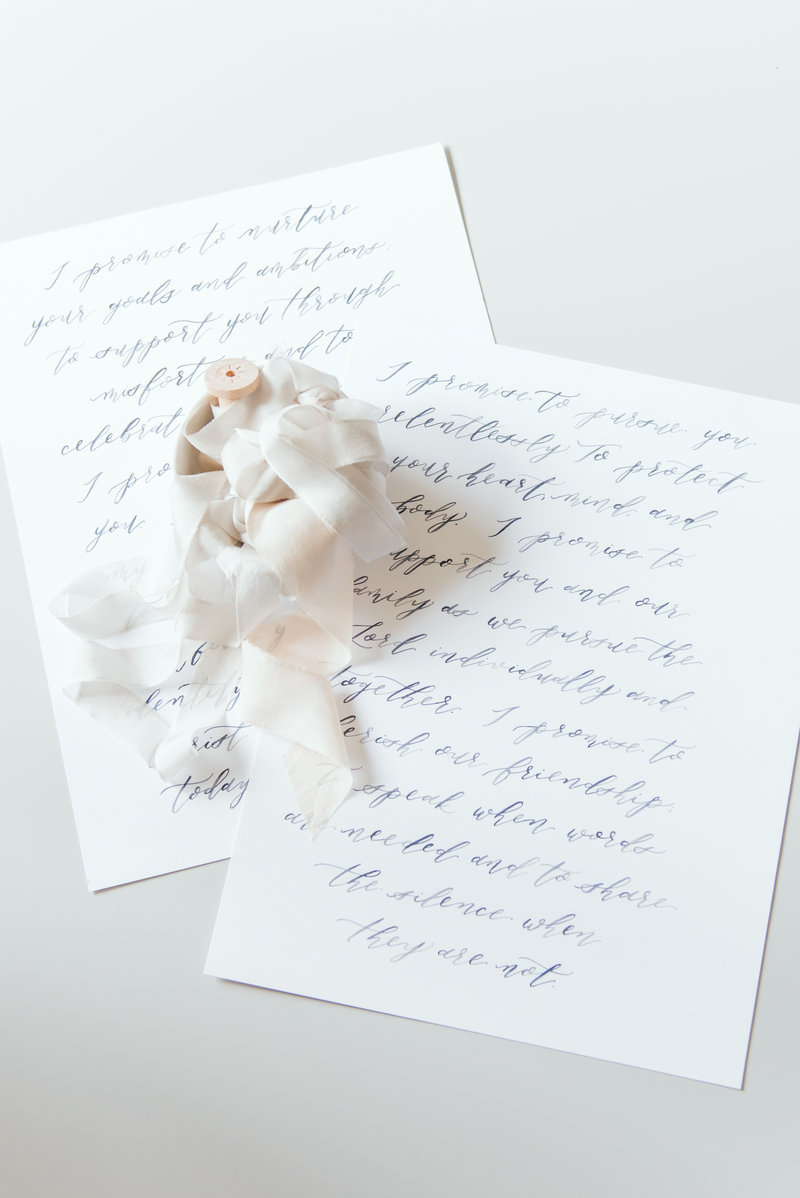 I promise to nurture
your goals and ambitions;
to support you through
misfort and to
celebrat
I pro
you
my
identity
rist
today
I promise to pursue you
relentlessly. To protect
your heart, mind, and
body. I promise to
upport you and our
family as we pursue the
Lord individually and
together. I promise to
herish our friendship;
speak when words
are needed and to share
the silence when
they are not.